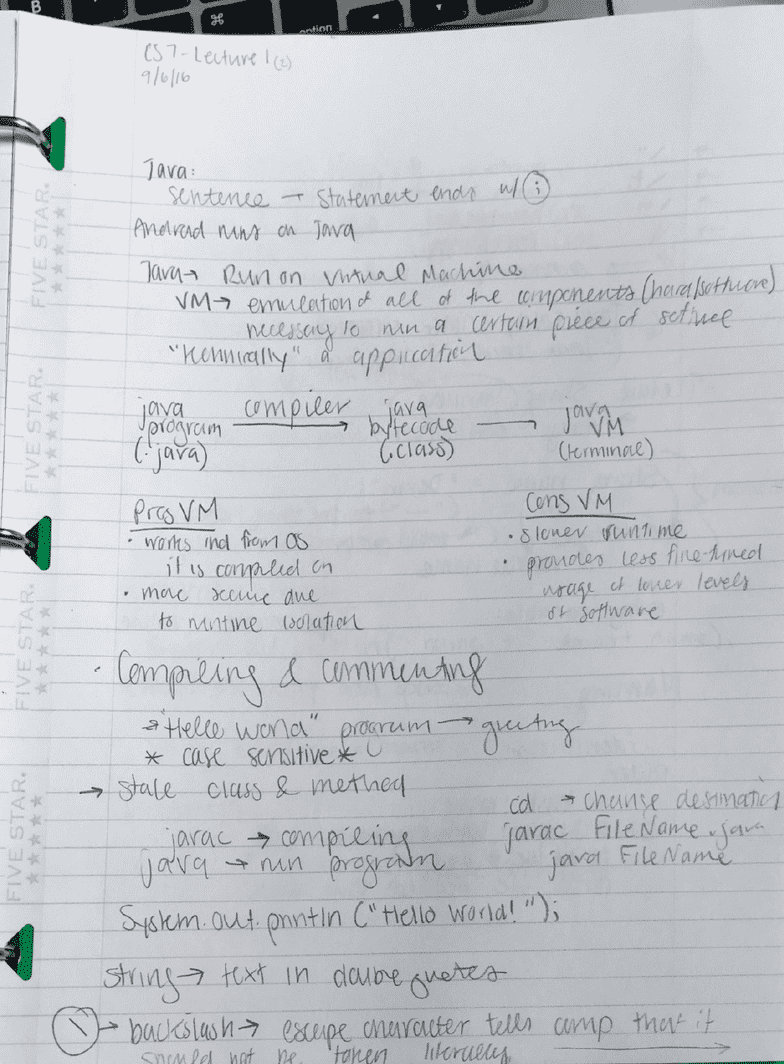 B
⌘
option
CS 7 - Lecture 1 (2)
9/6/16
Java:
sentence → statement ends w/ ;
Android runs on Java
Java → Run on Virtual Machine
VM → emulation of all of the components (hard/software)
necessary to run a certain piece of software
"technically" a application
java program (.java) compiler → java bytecode (.class) → java VM (terminal)
Pros VM
• works ind from OS
it is compiled on
• more secure due
to runtime isolation
Cons VM
• slower runtime
• provides less fine-tuned
usage of lower levels
of software
• Compiling & commenting
→ "Hello World" program → greeting
* case sensitive *
→ state class & method
javac → compiling
java → run program
cd → change destination
javac FileName.java
java FileName
System.out.println ("Hello World!");
String → text in double quotes
\ → backslash → escape character tells comp that it
should not be taken literally
FIVE STAR.
FIVE STAR.
FIVE STAR.
FIVE STAR.